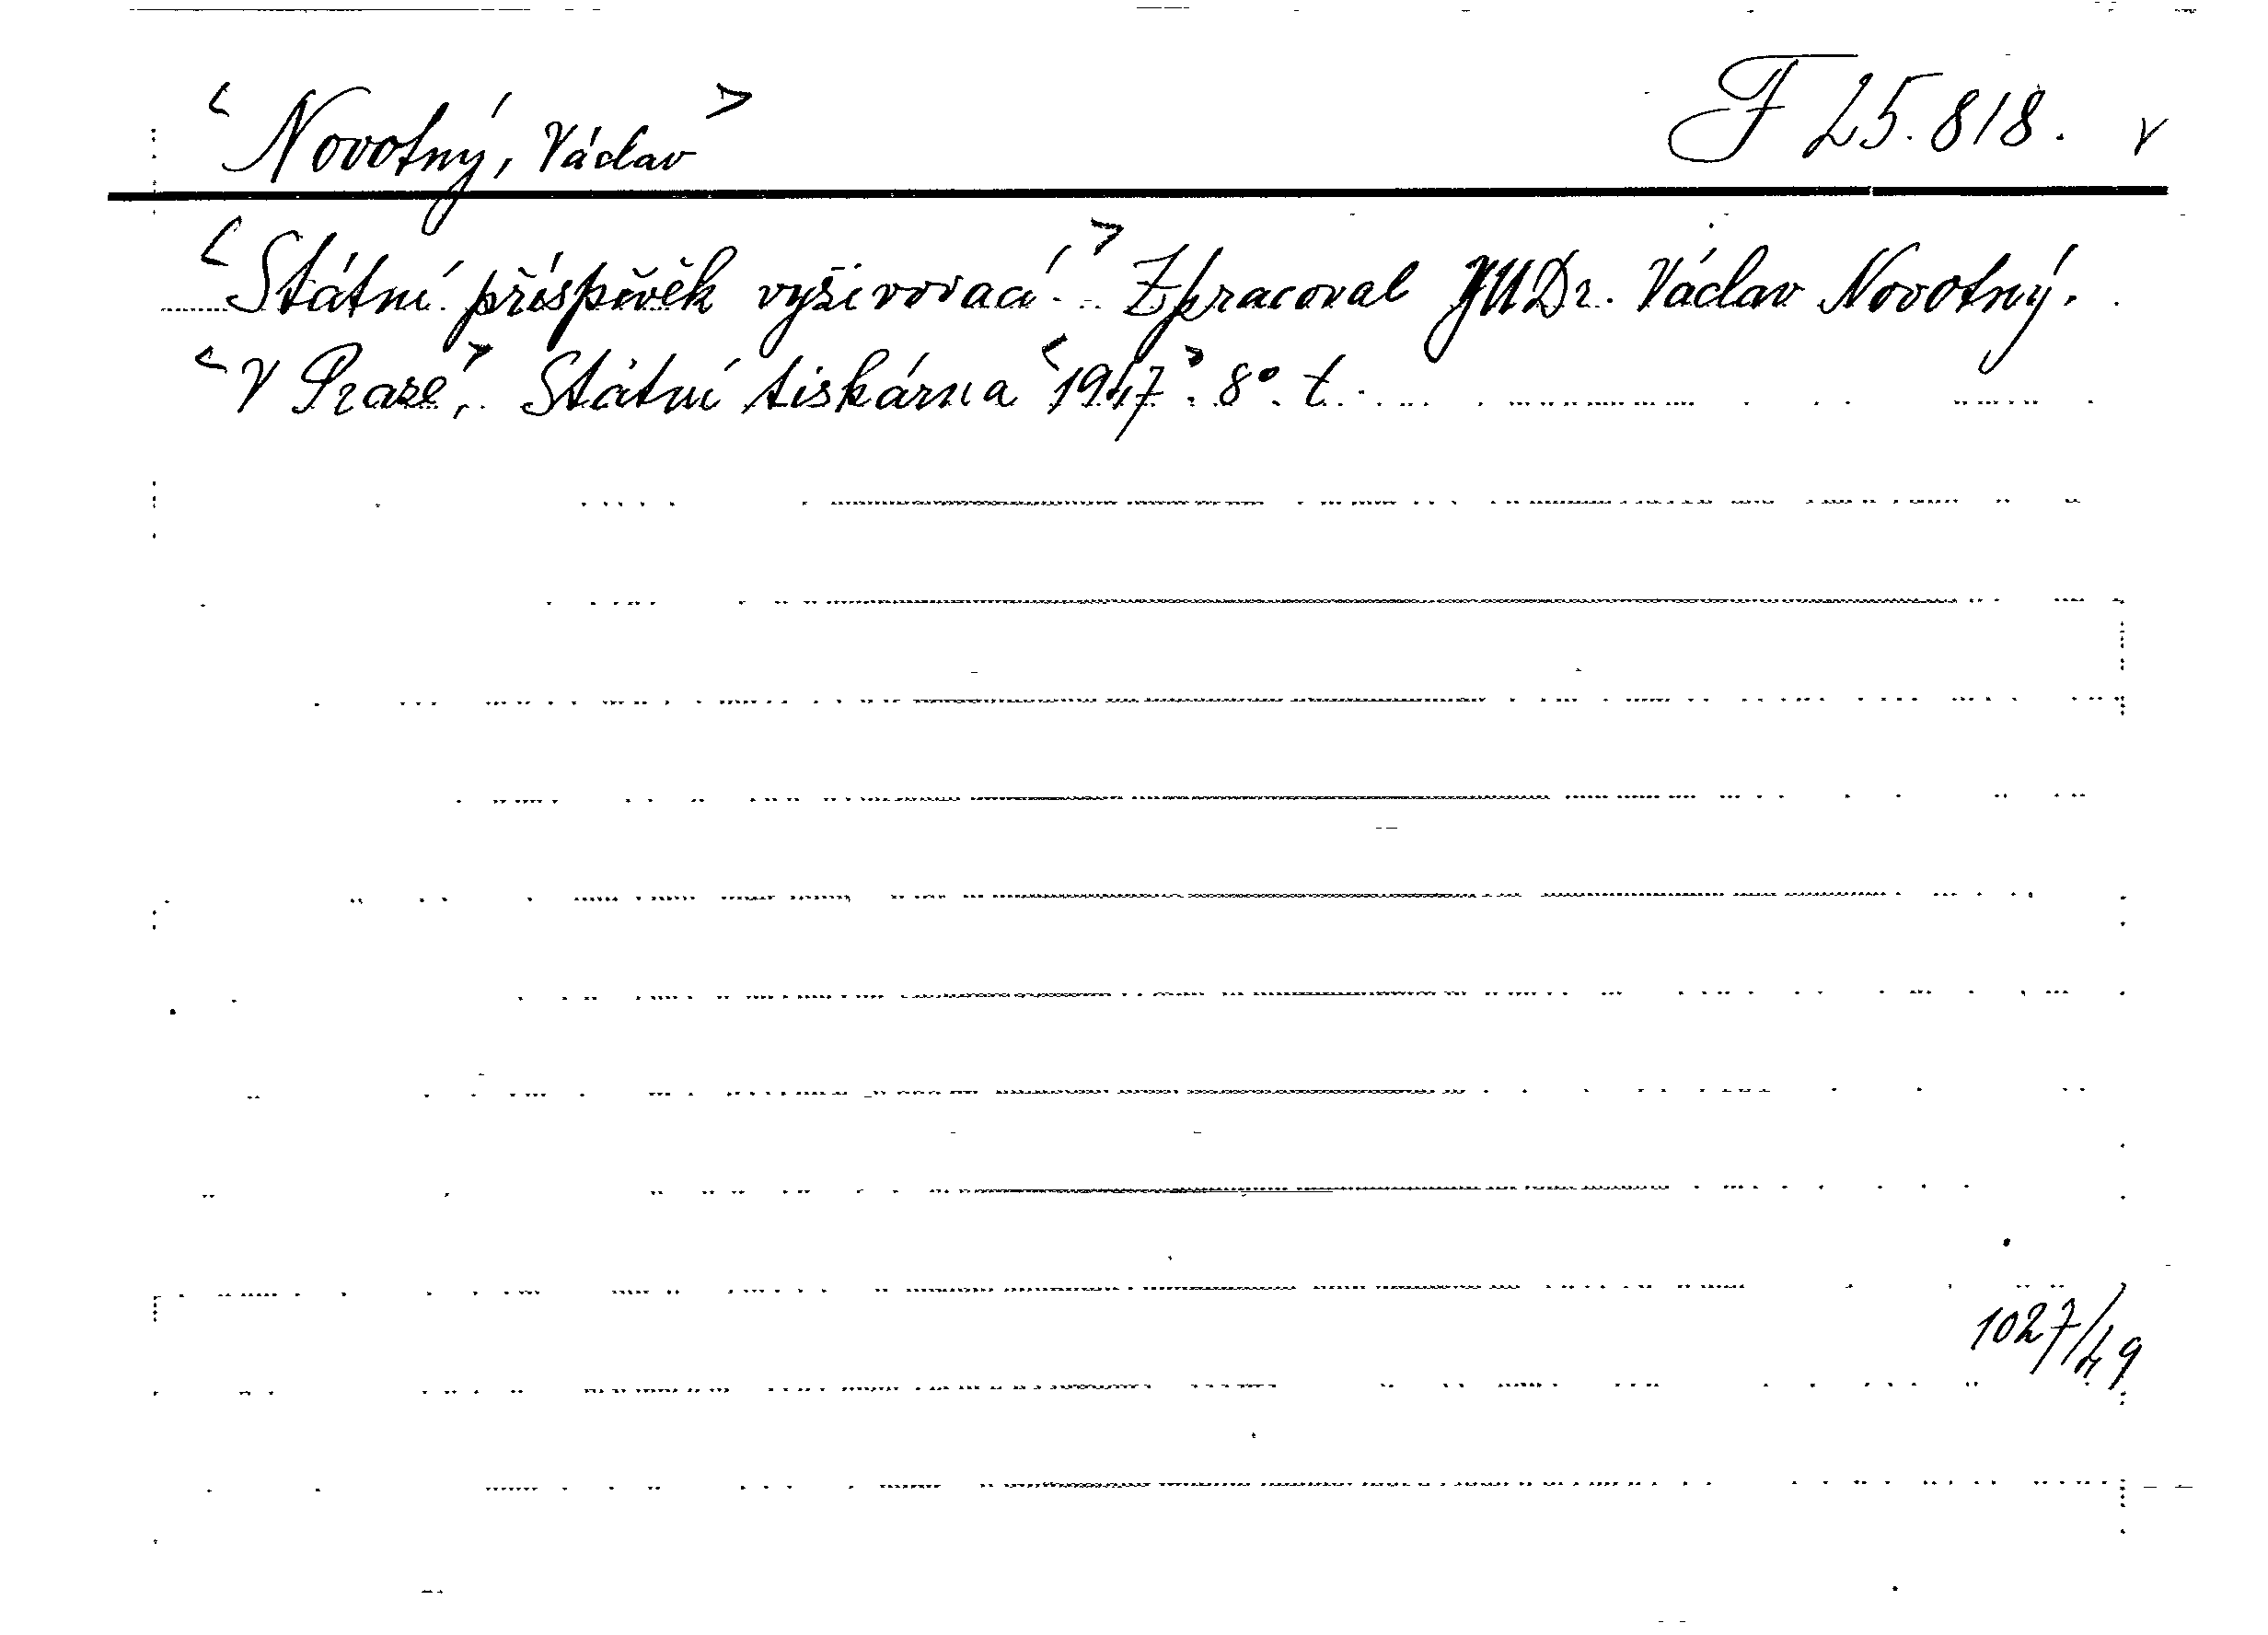 <Novotný, Václav> F 25.818. v
<Státní příspěvěk vyživovací.> Zpracoval JUDr. Václav Novotný.
<V Praze,> Státní tiskárna <1947>. 8°. t.
1027/49